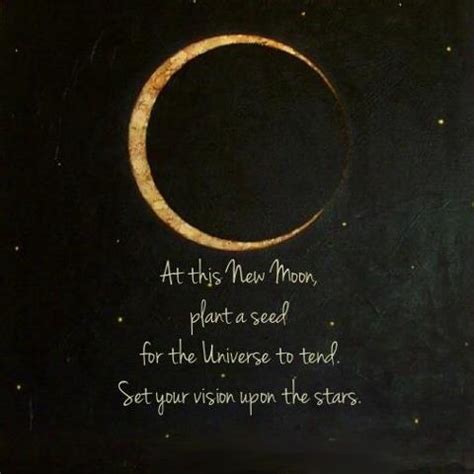 At this New Moon,
plant a seed
for the Universe to tend.
Set your vision upon the stars.